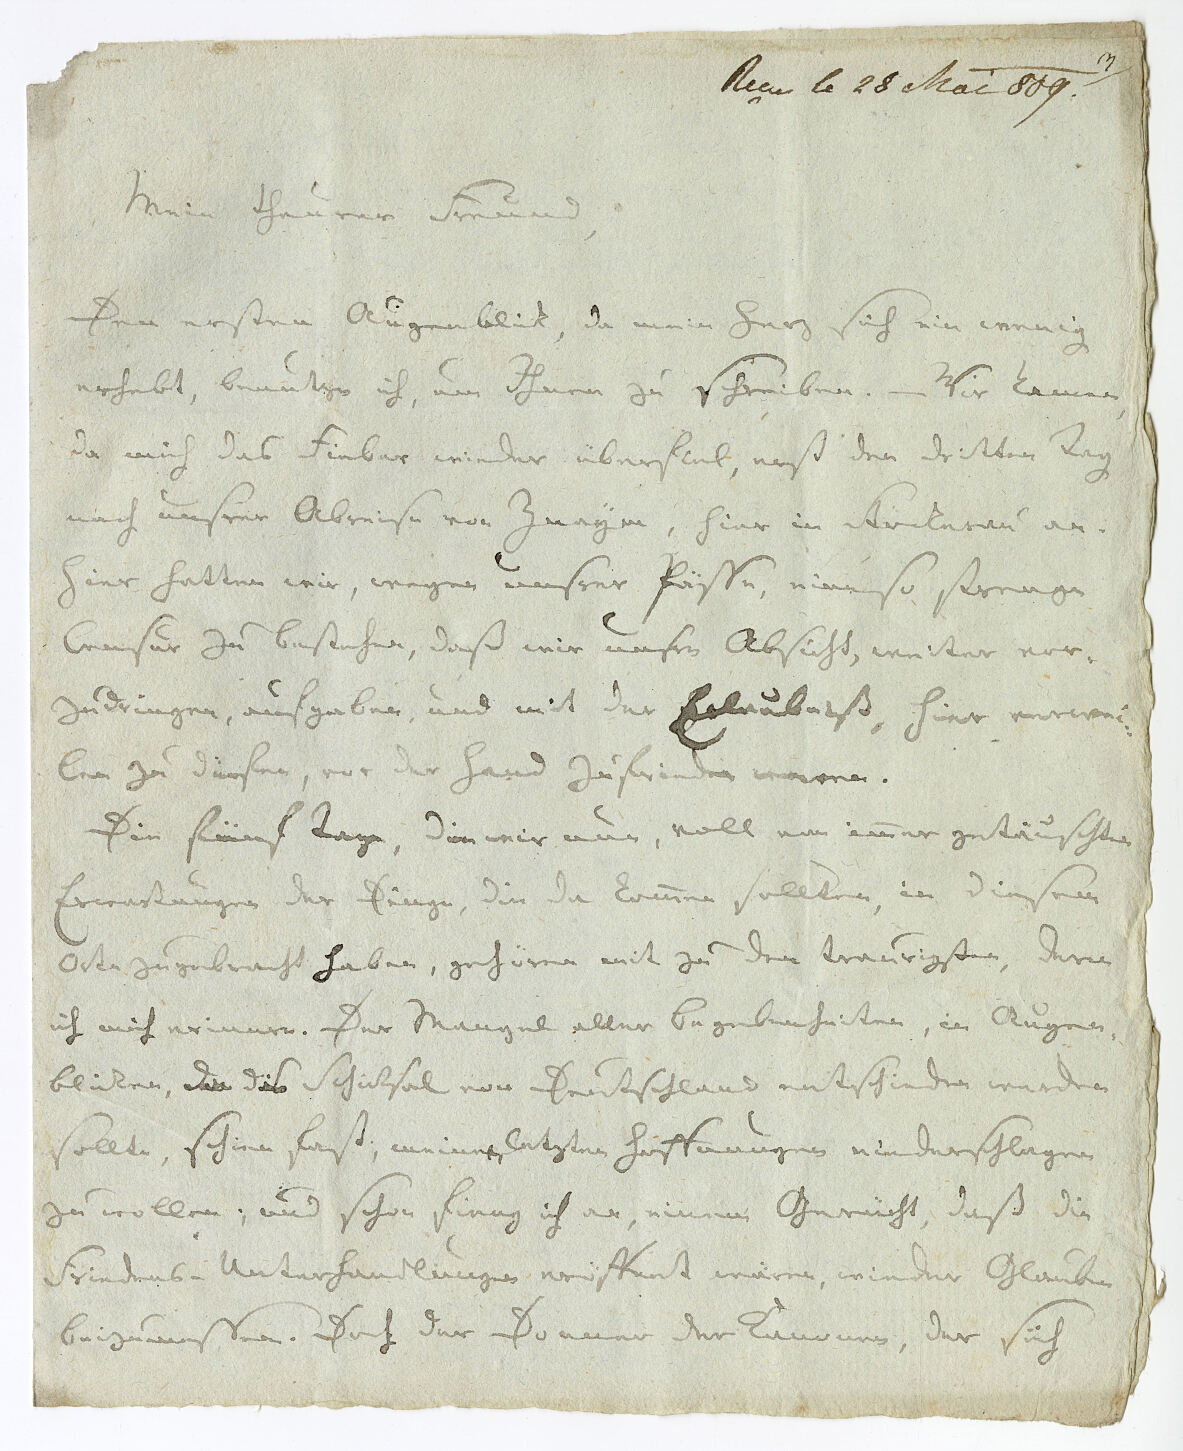 Reçu le 28 Mai 809.
Mein theurer Freund,
Den ersten Augenblick, da mein Herz sich ein wenig
erhebt, benutze ich, um Ihnen zu schreiben. — Wir kamen,
da mich das Fieber wieder überfiel, erst den dritten Tag
nach unsrer Abreise von Znaym, hier in Stockerau an.
Hier hatten wir, wegen unsrer Pässe, eine so strenge
Censur zu bestehen, daß wir unsre Absicht, weiter vor-
zudringen, aufgaben, und mit der Erlaubniß, hier verwei-
len zu dürfen, vor der Hand zufrieden waren.
Die fünf Tage, die wir nun, voll von immer getäuschten
Erwartungen der Dinge, die da kommen sollten, in diesem
Orte zugebracht haben, gehören mit zu den traurigsten, deren
ich mich erinnre. Der Mangel aller Begebenheiten, in Augen-
blicken, da das Schicksal von Deutschland entschieden werden
sollte, schien fast, meine letzten Hoffnungen niederschlagen
zu wollen; und schon fieng ich an, einem Gerücht, daß die
Friedens-Unterhandlungen eröffnet wären, wieder Glauben
beizumessen. Doch der Donner der Kanonen, der sich